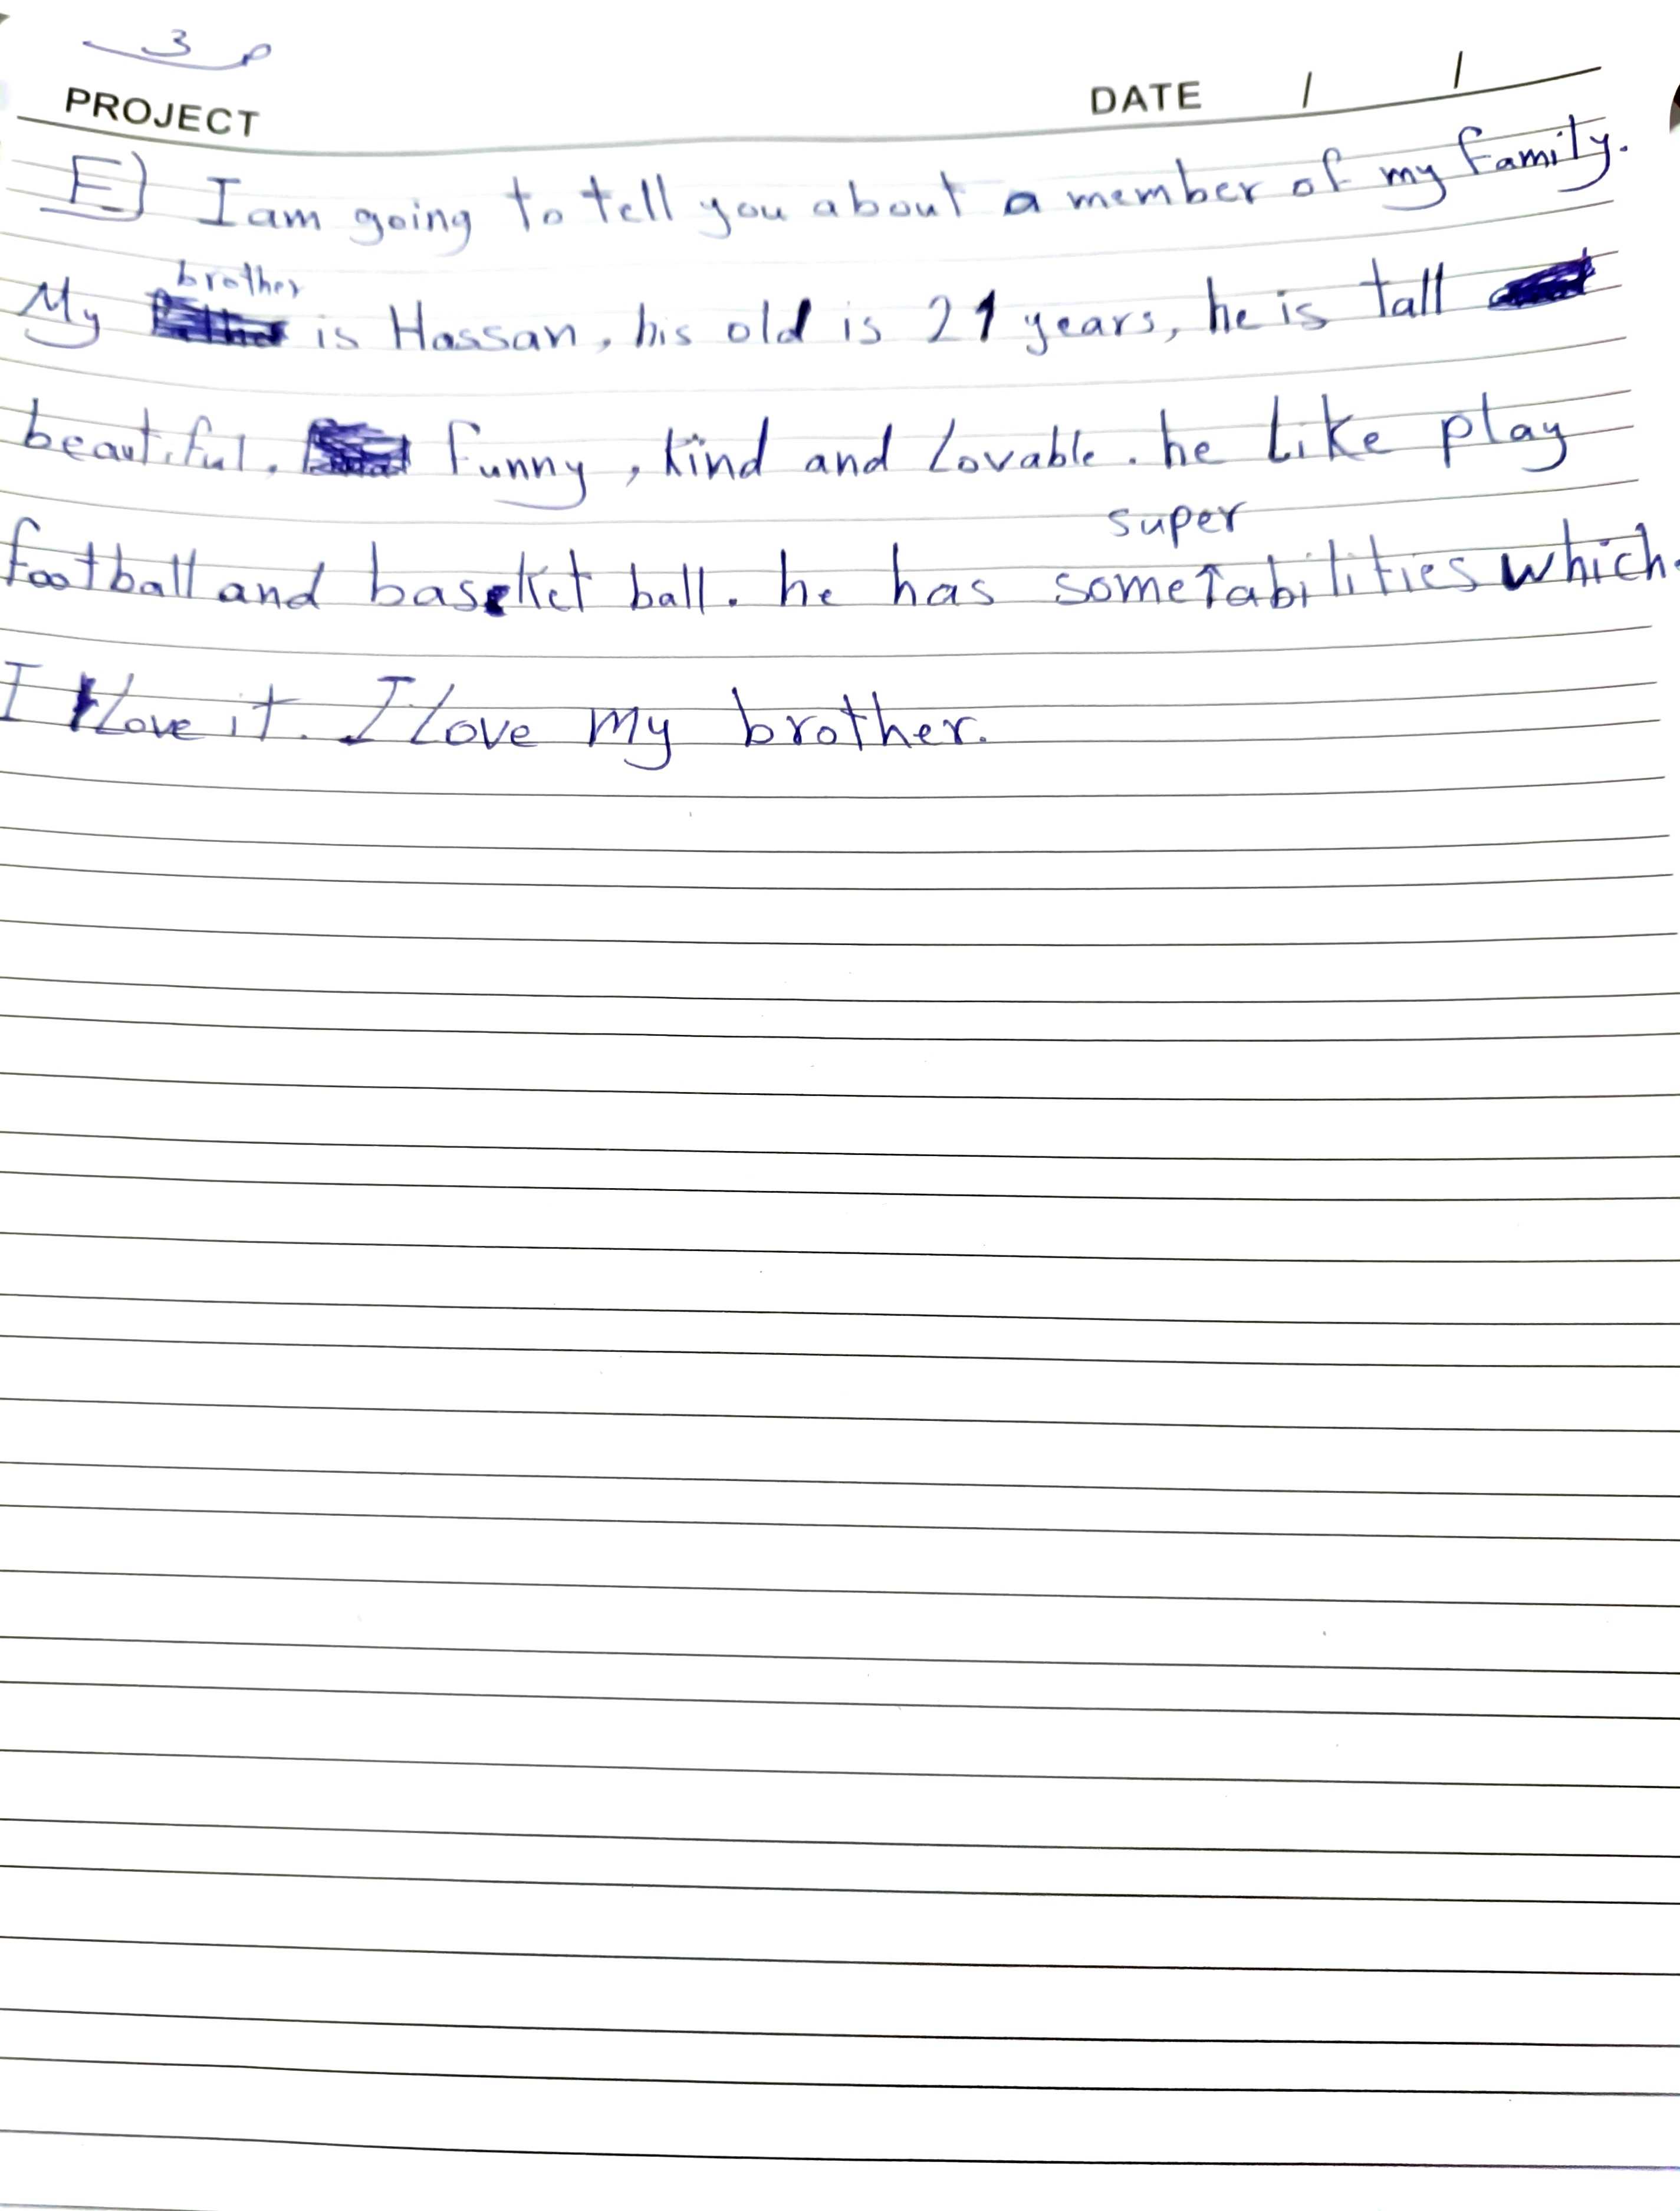 3
PROJECT DATE / /
E) I am going to tell you about a member of my family.
My brother is Hassan, his old is 21 years, he is tall
beautiful, funny, kind and lovable. he like play
football and basket ball. he has some super abilities which
I love it. I love my brother.